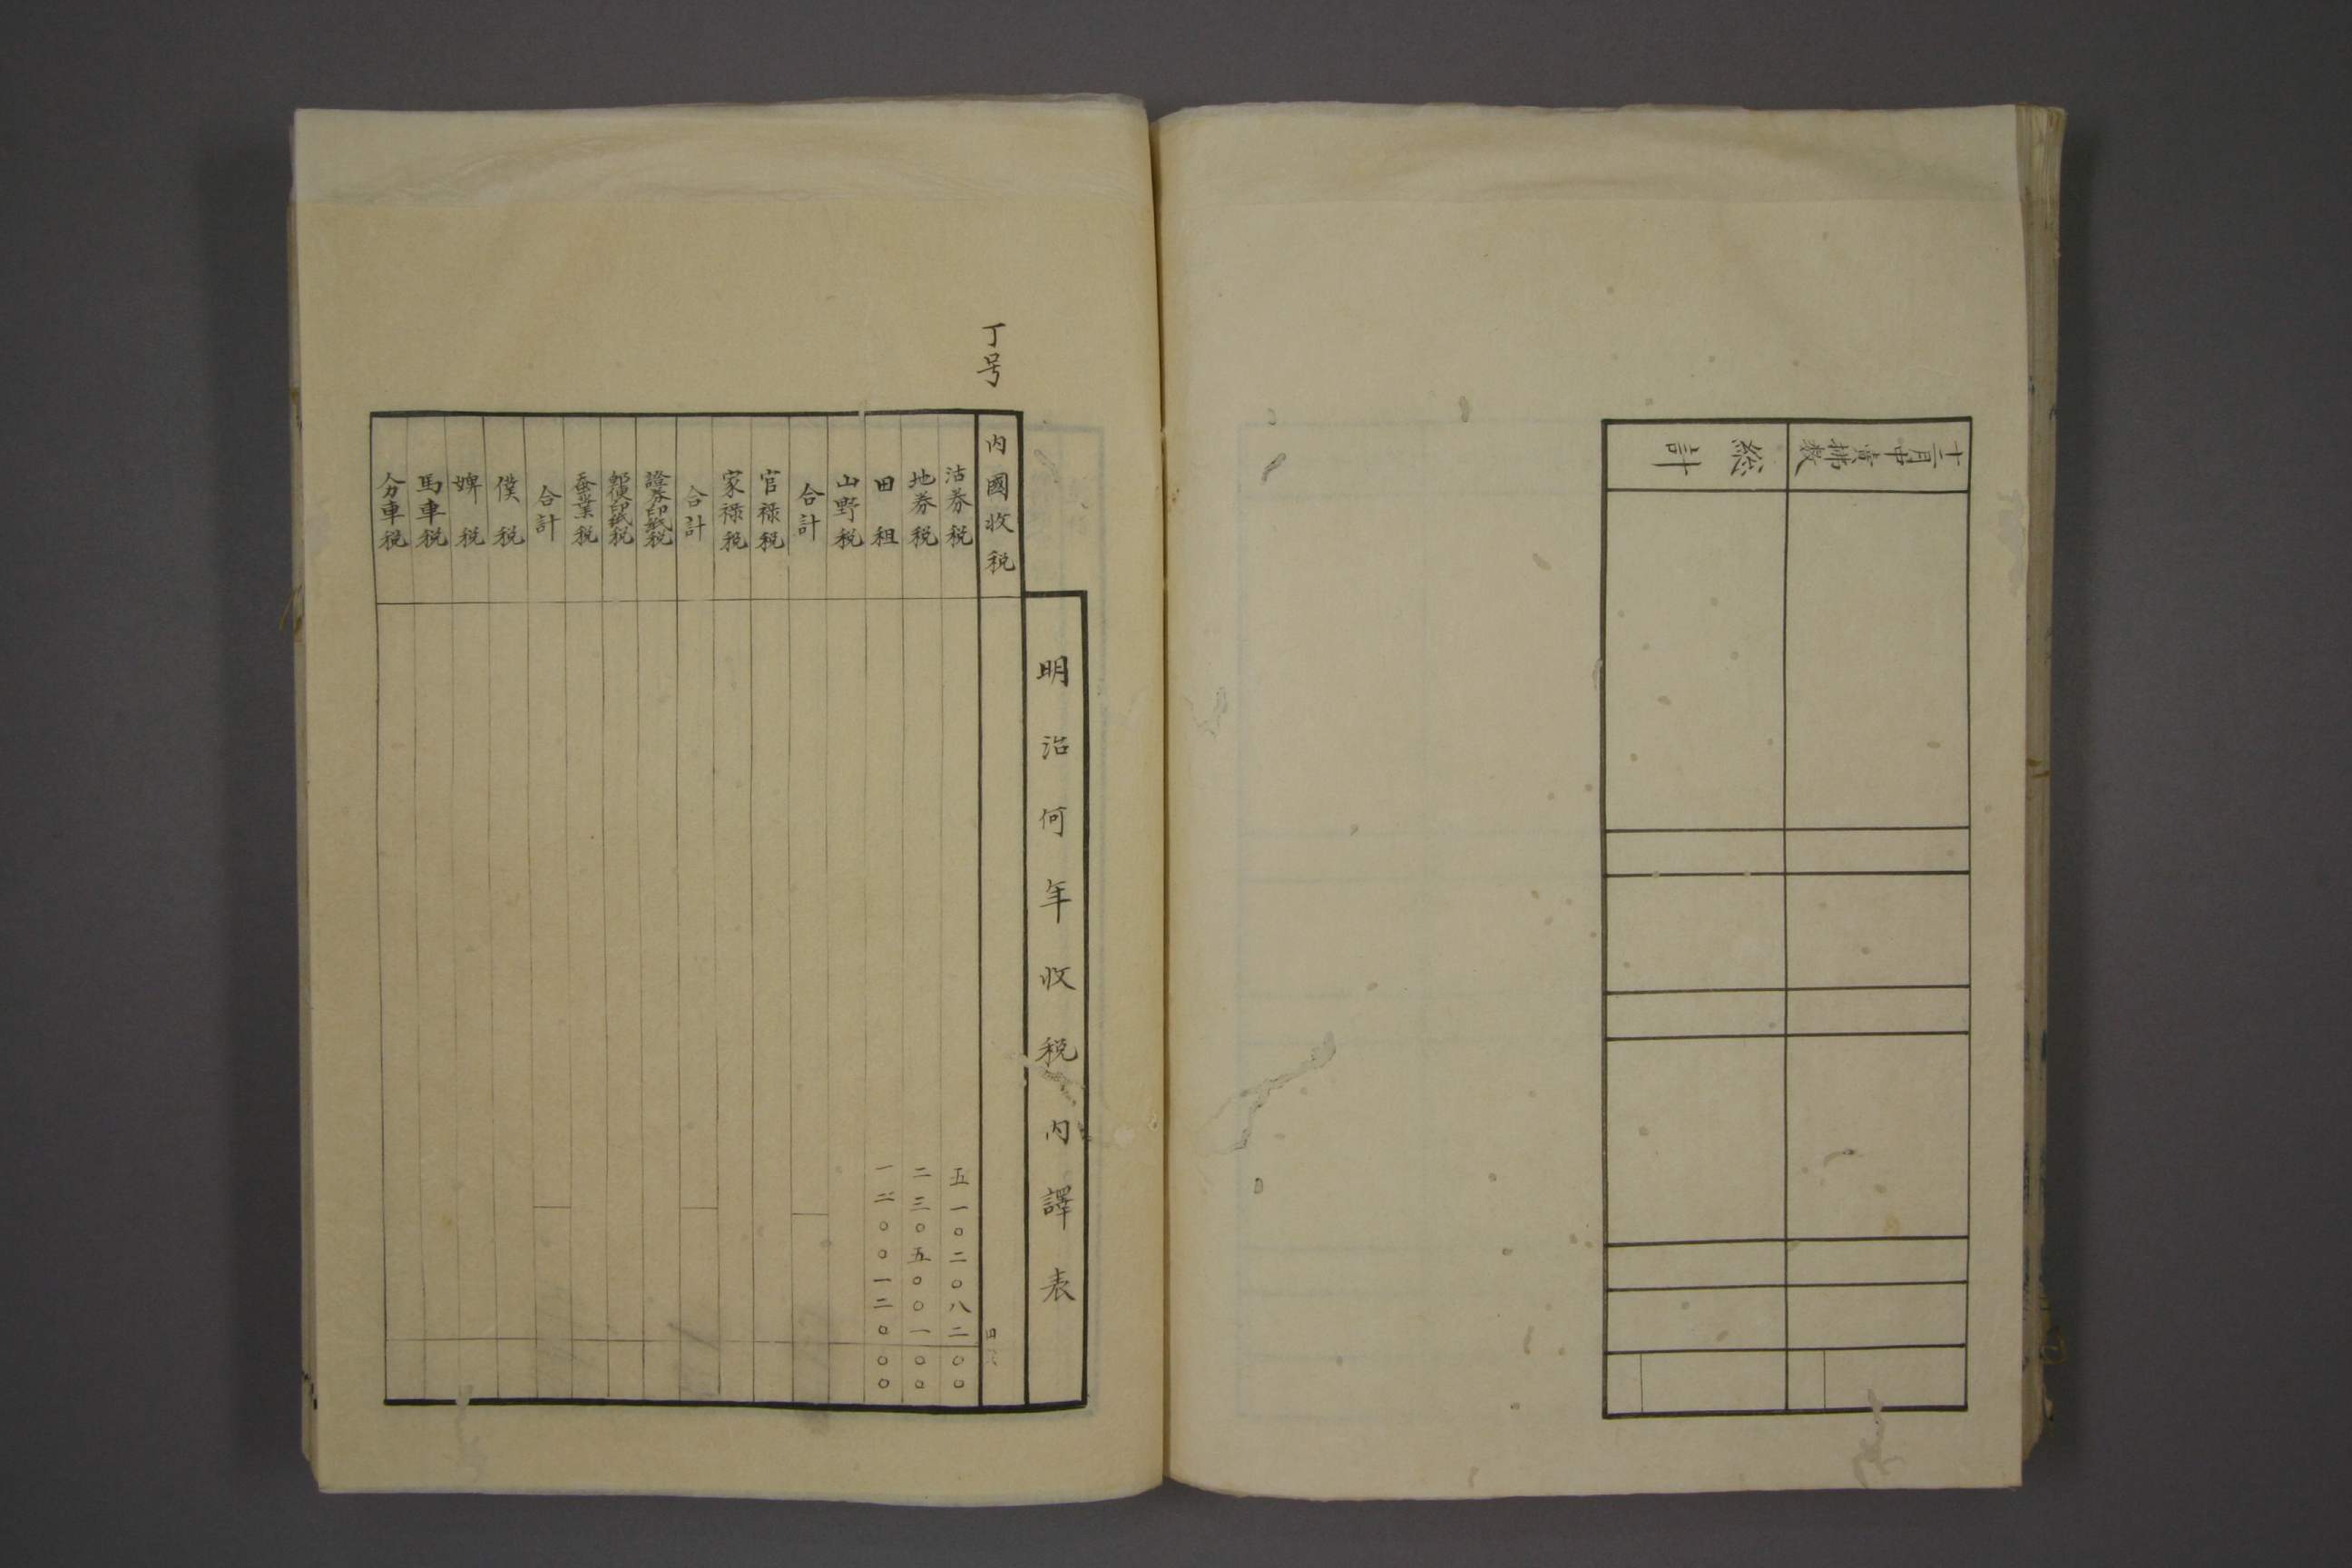 十二月中賣拂数
総計
丁号
明治何年收税内譯表
内國收税
沽券税 五一〇二〇八二〇〇
地券税 二三〇五〇〇一〇〇
田租 一二〇〇一二〇〇〇
山野税
合計
官禄税
家禄税
合計
證券印紙税
郵便印紙税
蚕業税
合計
僕税
婢税
馬車税
人力車税